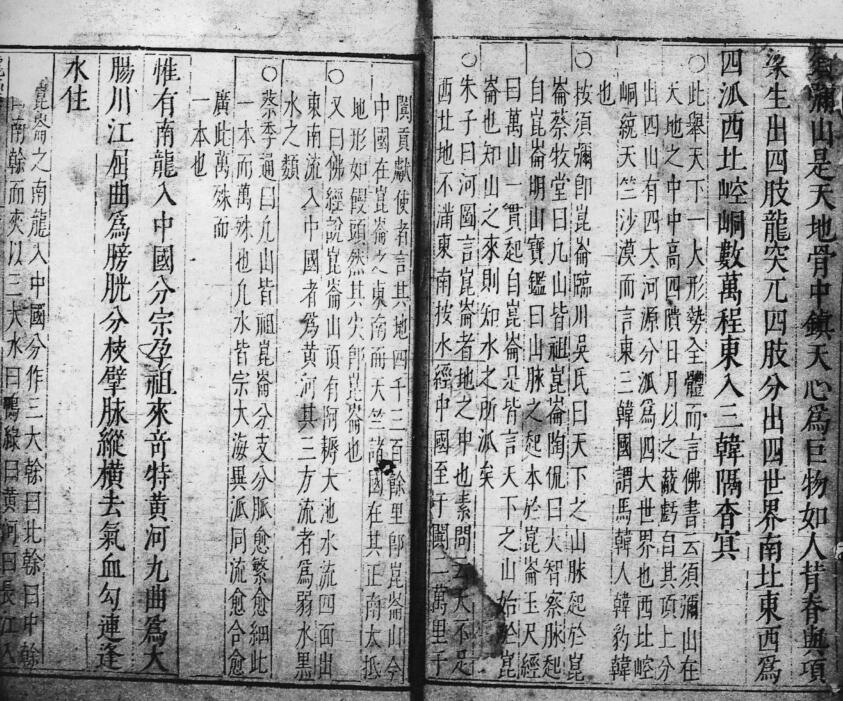 須彌山是天地骨中鎮天心爲巨物如人背脊與項
梁生出四肢龍突兀四肢分出四世界南北東西爲
四派西北崆峒數萬程東入三韓隔杳冥
○此舉天下一大形勢全體而言佛書云須彌山在
天地之中中高四隤日月以之蔽虧自其頂上分
出四山有四大河源分派爲四大世界也西北崆
峒統天竺沙漠而言東三韓國謂馬韓人韓豹韓
也
○按須彌卽崑崙臨川吳氏曰天下之山脉起於崑
崙蔡牧堂曰凢山皆祖崑崙陶侃曰大智察脉起
自崑崙明山寶鑑曰山脉之起本於崑崙玉尺經
曰萬山一貫起自崑崙是皆言天下之山始於崑
崙也知山之來則知水之所派矣
○朱子曰河圖言崑崙者地之中也素問云天不足
西北地不滿東南按水經中國至于闐二萬里于
闐貢獻使者言其地四千三百餘里卽崑崙山今
中國在崑崙之東南而天竺諸國在其正南大抵
地形如饅頭然其尖卽崑崙也
○又曰佛經說崑崙山頂有阿耨大池水流四面出
東南流入中國者爲黃河其三方流者爲弱水黑
水之類
○蔡季通曰凢山皆祖崑崙分支分脈愈繁愈細此
一本而萬殊也凢水皆宗大海異派同流愈合愈
廣此萬殊而
一本也
惟有南龍入中國分宗孕祖來奇特黃河九曲爲大
腸川江屈曲爲膀胱分枝擘脉縱橫去氣血勾連逢
水住
崑崙之南龍入中國分作三大幹曰北幹曰中幹
曰南幹而夾以三大水曰鴨綠曰黃河曰長江入